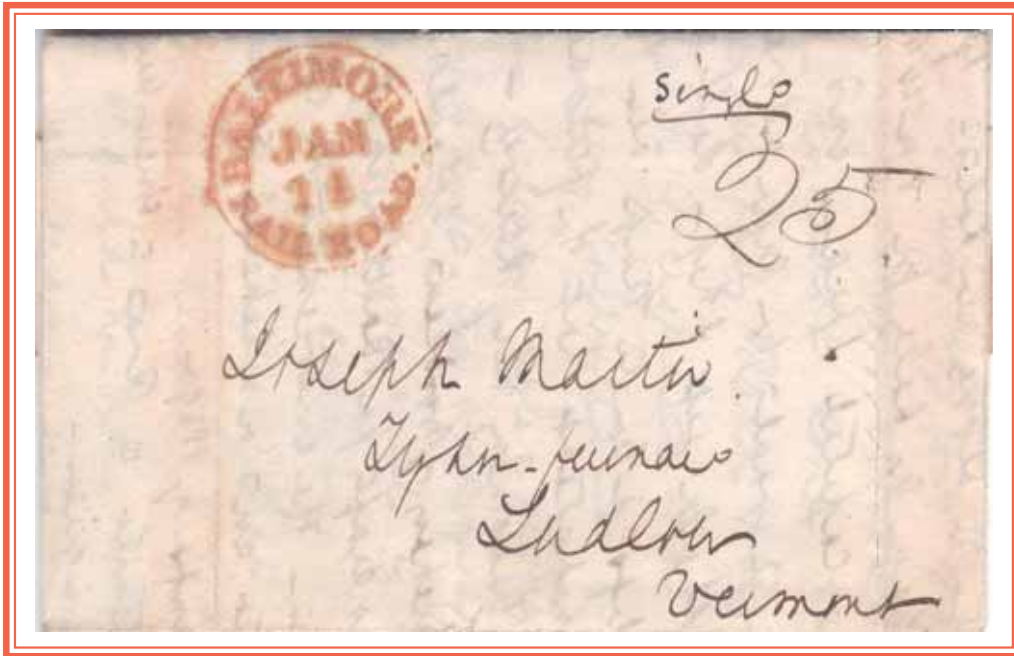 BALTIMORE
JAN
11
RAIL ROAD.
single
25
Joseph Martin
Tyson furnace
Ludlow
Vermont